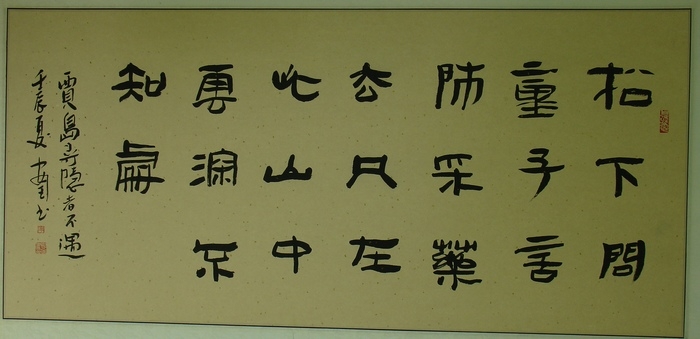 松下問
童子言
師采藥
去只在
此山中
雲深不
知處
賈島尋隱者不遇
壬辰夏